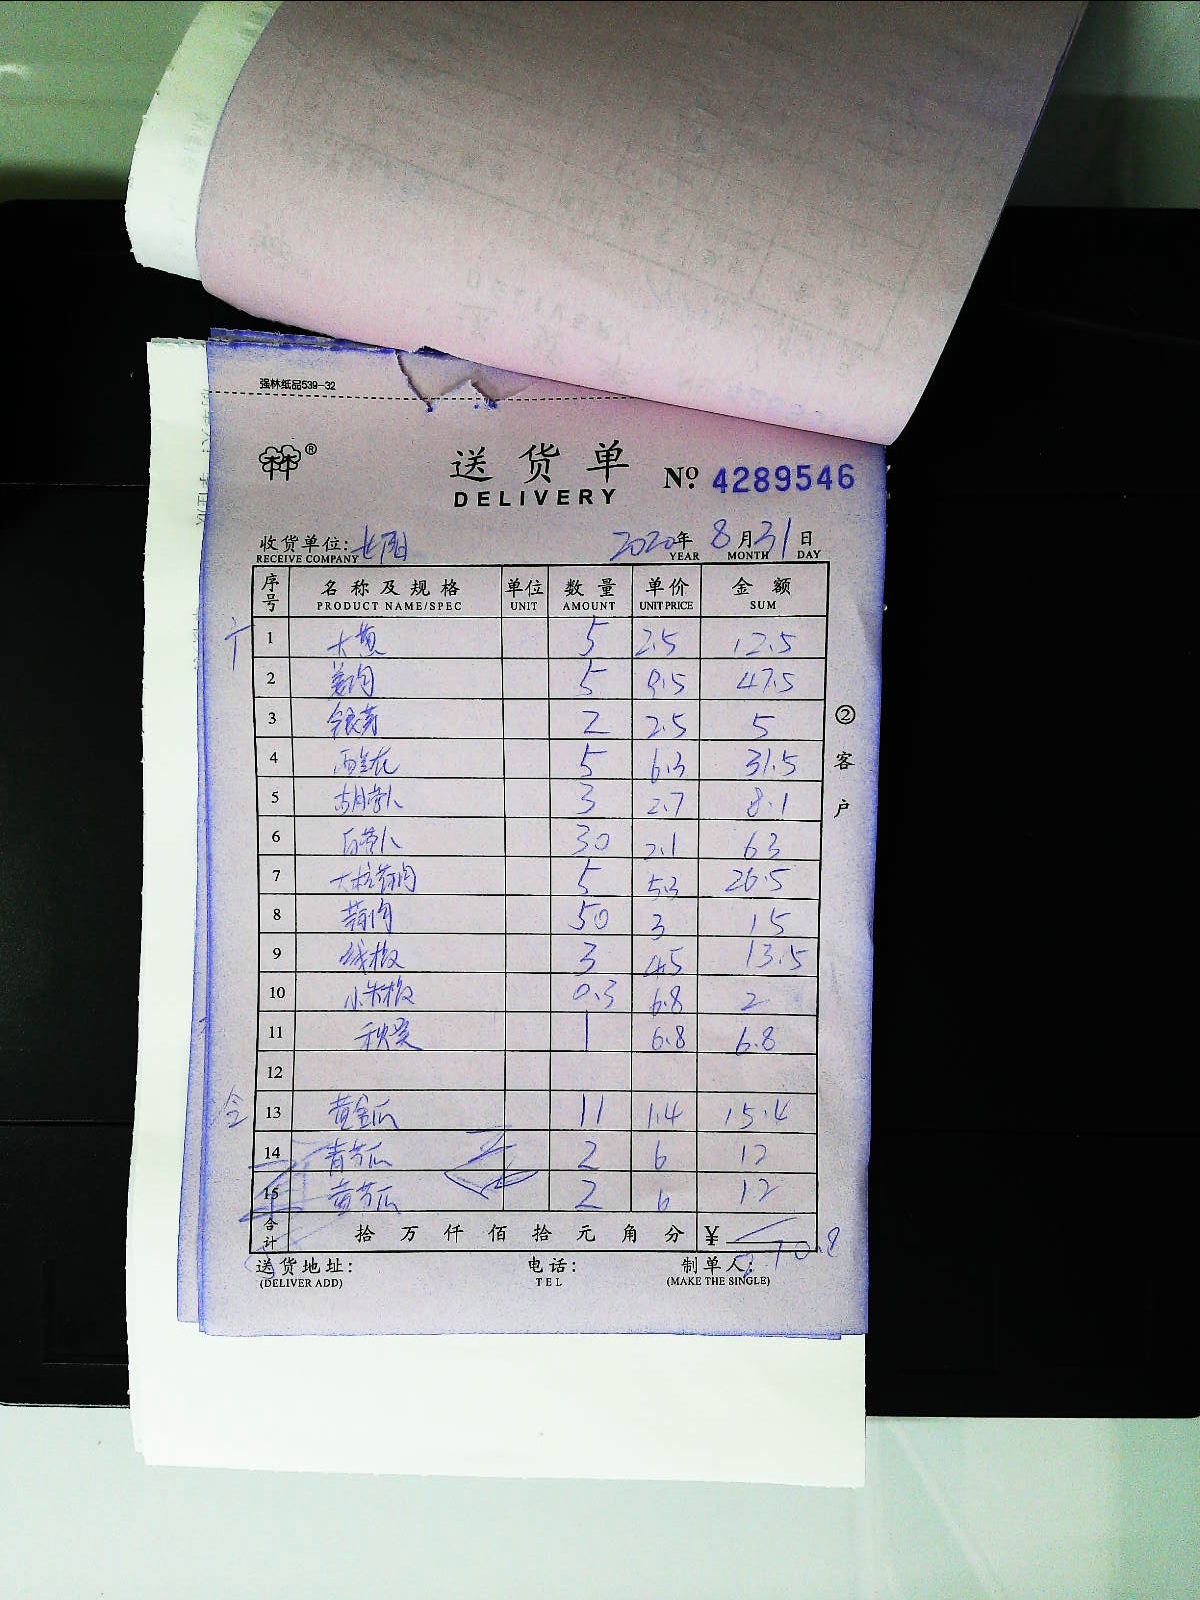 强林纸品539-32
林林®
送货单 Nº. 4289546
DELIVERY
收货单位: 2020年 8月31日
RECEIVE COMPANY YEAR MONTH DAY
序号 名称及规格 单位 数量 单价 金额
PRODUCT NAME/SPEC UNIT AMOUNT UNIT PRICE SUM
1 大葱 5 2.5 12.5
2 姜肉 5 9.5 47.5
3 银芽 2 2.5 5
4 西兰花 5 6.3 31.5
5 胡萝卜 3 2.7 8.1
6 白萝卜 30 2.1 63
7 5 5.3 26.5
8 50 3 15
9 线椒 3 4.5 13.5
10 小米椒 0.3 6.8 2
11 秋葵 1 6.8 6.8
12
13 黄金瓜 11 1.4 15.4
14 青节瓜 2 6 12
15 黄节瓜 2 6 12
合计 拾 万 仟 佰 拾 元 角 分 ¥
送货地址: 电话: 制单人:
(DELIVER ADD) TEL (MAKE THE SINGLE)
②客户